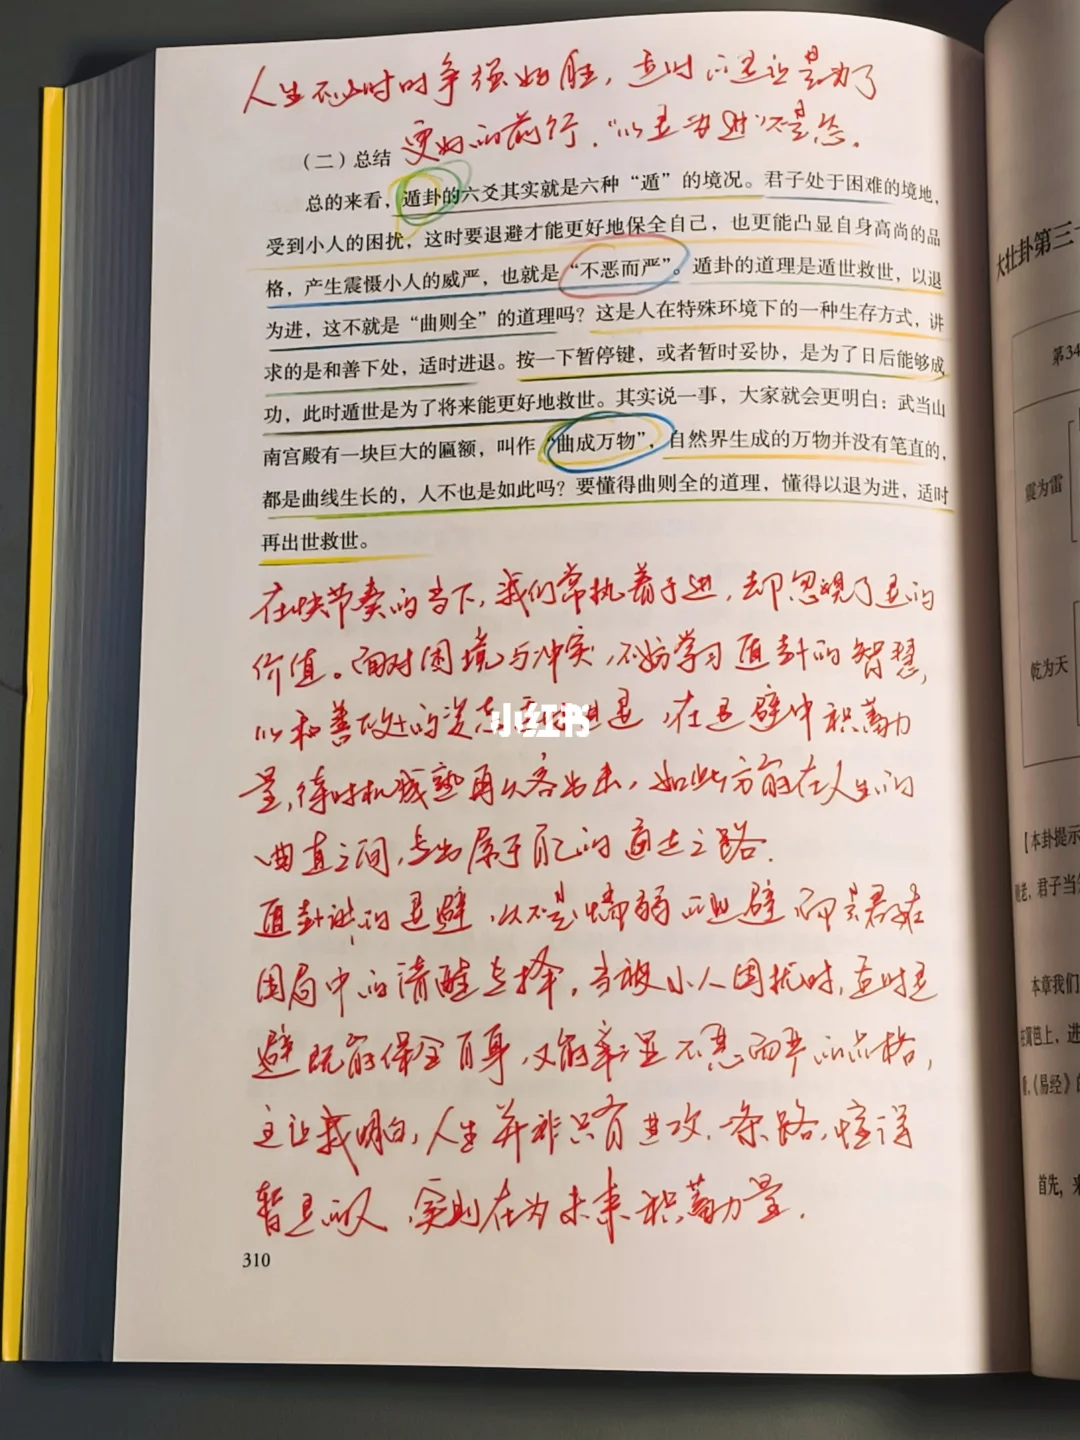 人生不必时时争强好胜，适时的退让是为了
更好的前行，“以退为进”不是怂。
（二）总结
总的来看，遁卦的六爻其实就是六种“遁”的境况。君子处于困难的境地，
受到小人的困扰，这时要退避才能更好地保全自己，也更能凸显自身高尚的品
格，产生震慑小人的威严，也就是“不恶而严”。遁卦的道理是遁世救世，以退
为进，这不就是“曲则全”的道理吗？这是人在特殊环境下的一种生存方式，讲
求的是和善下处，适时进退。按一下暂停键，或者暂时妥协，是为了日后能够成
功，此时遁世是为了将来能更好地救世。其实说一事，大家就会更明白：武当山
南宫殿有一块巨大的匾额，叫作“曲成万物”，自然界生成的万物并没有笔直的，
都是曲线生长的，人不也是如此吗？要懂得曲则全的道理，懂得以退为进，适时
再出世救世。
在快节奏的当下，我们常执着于进，却忽视了退的
价值。面对困境与冲突，不妨学习遁卦的智慧，
以和善的姿态进退，在退避中积蓄力
量，待时机成熟再从容出击，如此方能在人生的
曲直之间，走出属于自己的通达之路．
遁卦讲的退避，从不是懦弱的逃避，而是君子在
困局中的清醒选择，当被小人困扰时，适时退
避既能保全自身，又能彰显不恶而严的品格，
这让我明白，人生并非只有进攻一条路，懂得
暂退的人，实则在为未来积蓄力量．
310
大壮卦第三十
第34
震为雷
乾为天
【本卦提示
君子当
本章我们
进
《易经》的
首先，来
小红书